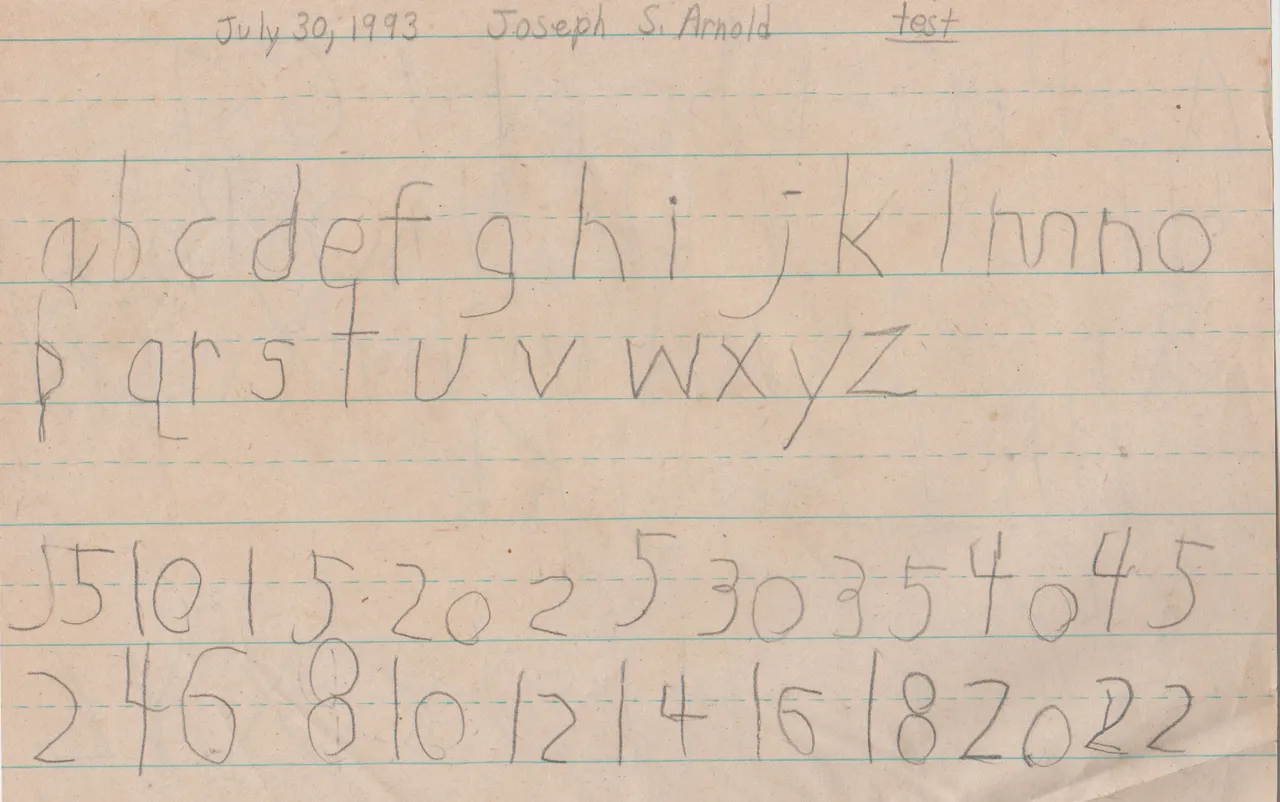 July 30, 1993 Joseph S. Arnold test
a b c d e f g h i j k l m n o
p q r s t u v w x y z
5 10 15 20 25 30 35 40 45
2 4 6 8 10 12 14 16 18 20 22